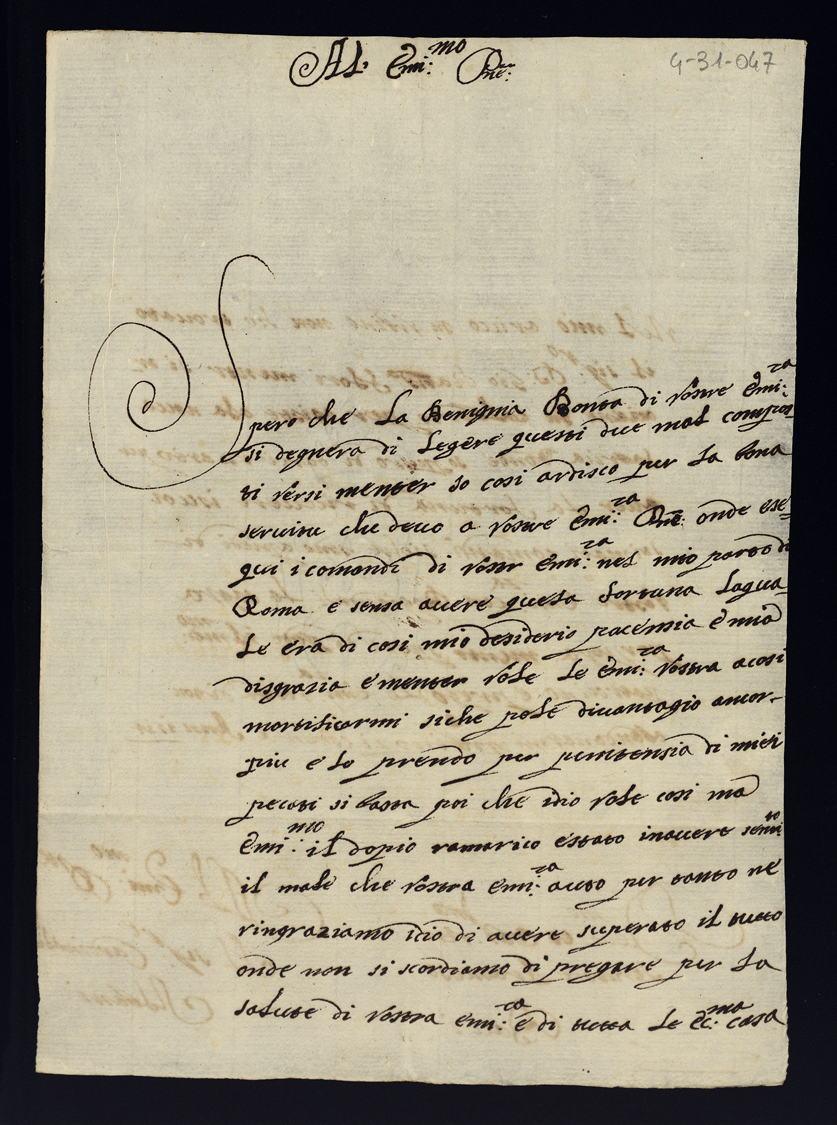 Al. Emi:mo Pne:
4-31-047
Spero che La Benignia Bonta di Vostre Emi:za
si degnera di Legere questi due mal compos
ti versi menter so cosi ardisco per La bona
servitu che devo a Vostre Emi:za Pne: onde ese=
qui i comandi di Vostr Emi:za nel mio parto di
Roma e sensa avere questa fortuna Laqua=
Le era di cosi mio desiderio pacensia e mia
disgrazia e menter vole Le Emi:za Vostra acosi
mortificarmi siche pole dicantagio ancor-
piu e lo prendo per penitensia di miei
pecati si basta poi che idio vole cosi ma
Emi:mo il dopio ramarico estato inavere senti:to
il male che Vostra Emi:za auto per tanto ne
ringraziamo idio di avere superato il tutto
onde non si scordiamo di pregare per La
salute di Vostra emi:za e di tutta Le ec:ma casa